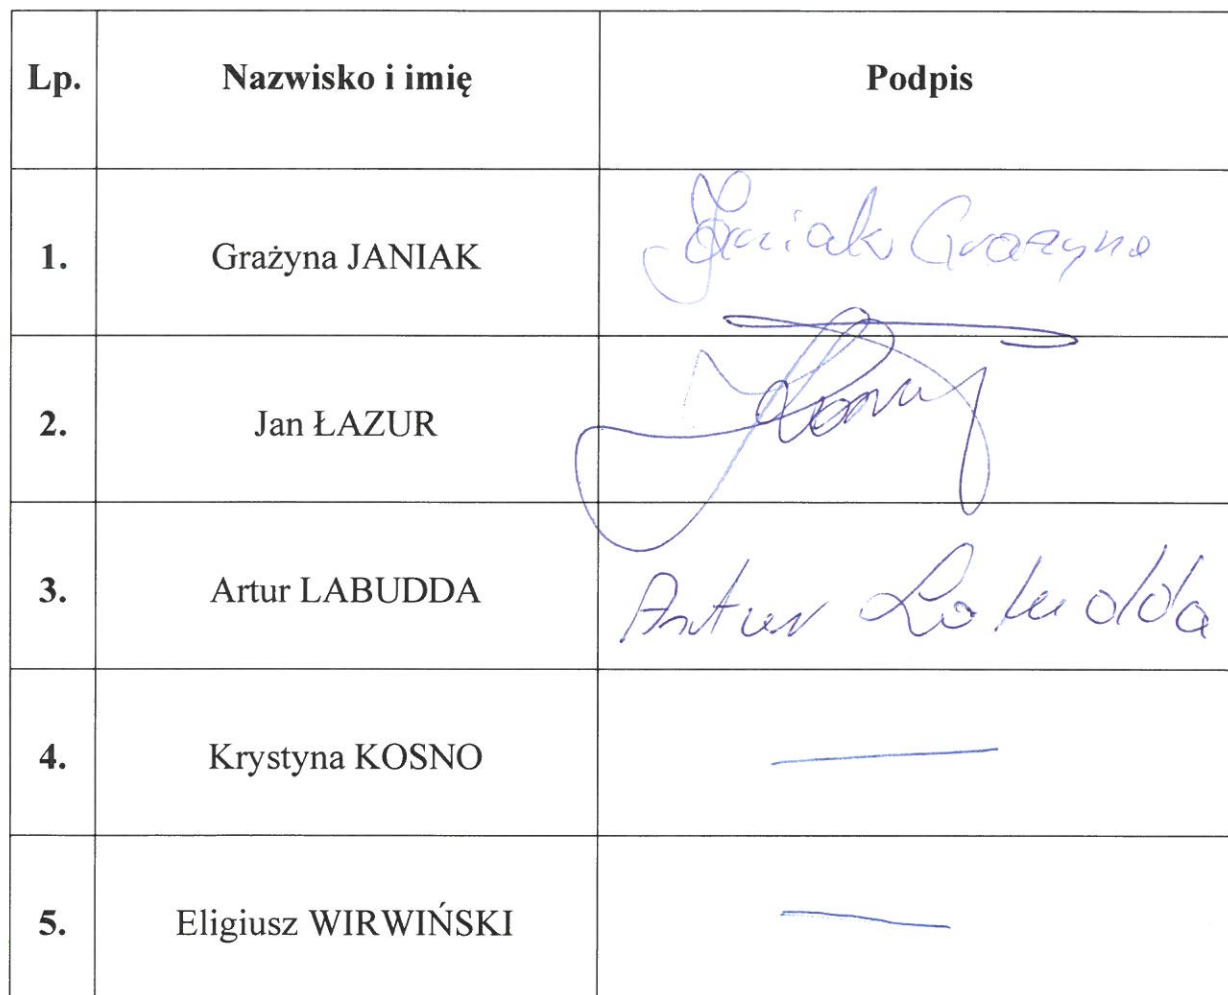 Lp. Nazwisko i imię Podpis
1. Grażyna JANIAK Janiak Grażyna
2. Jan ŁAZUR
3. Artur LABUDDA Artur Labudda
4. Krystyna KOSNO —
5. Eligiusz WIRWIŃSKI —